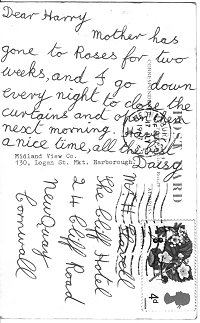 Dear Harry
Mother has
gone to Roses for two
weeks, and I go down
every night to close the
curtains and open them
next morning. Have
a nice time, all the best
Daisy
POST CARD
Midland View Co.
130, Logan St. Mkt. Harborough
The Cliff Hotel
24 Cliff Road
Newquay
Cornwall
4d